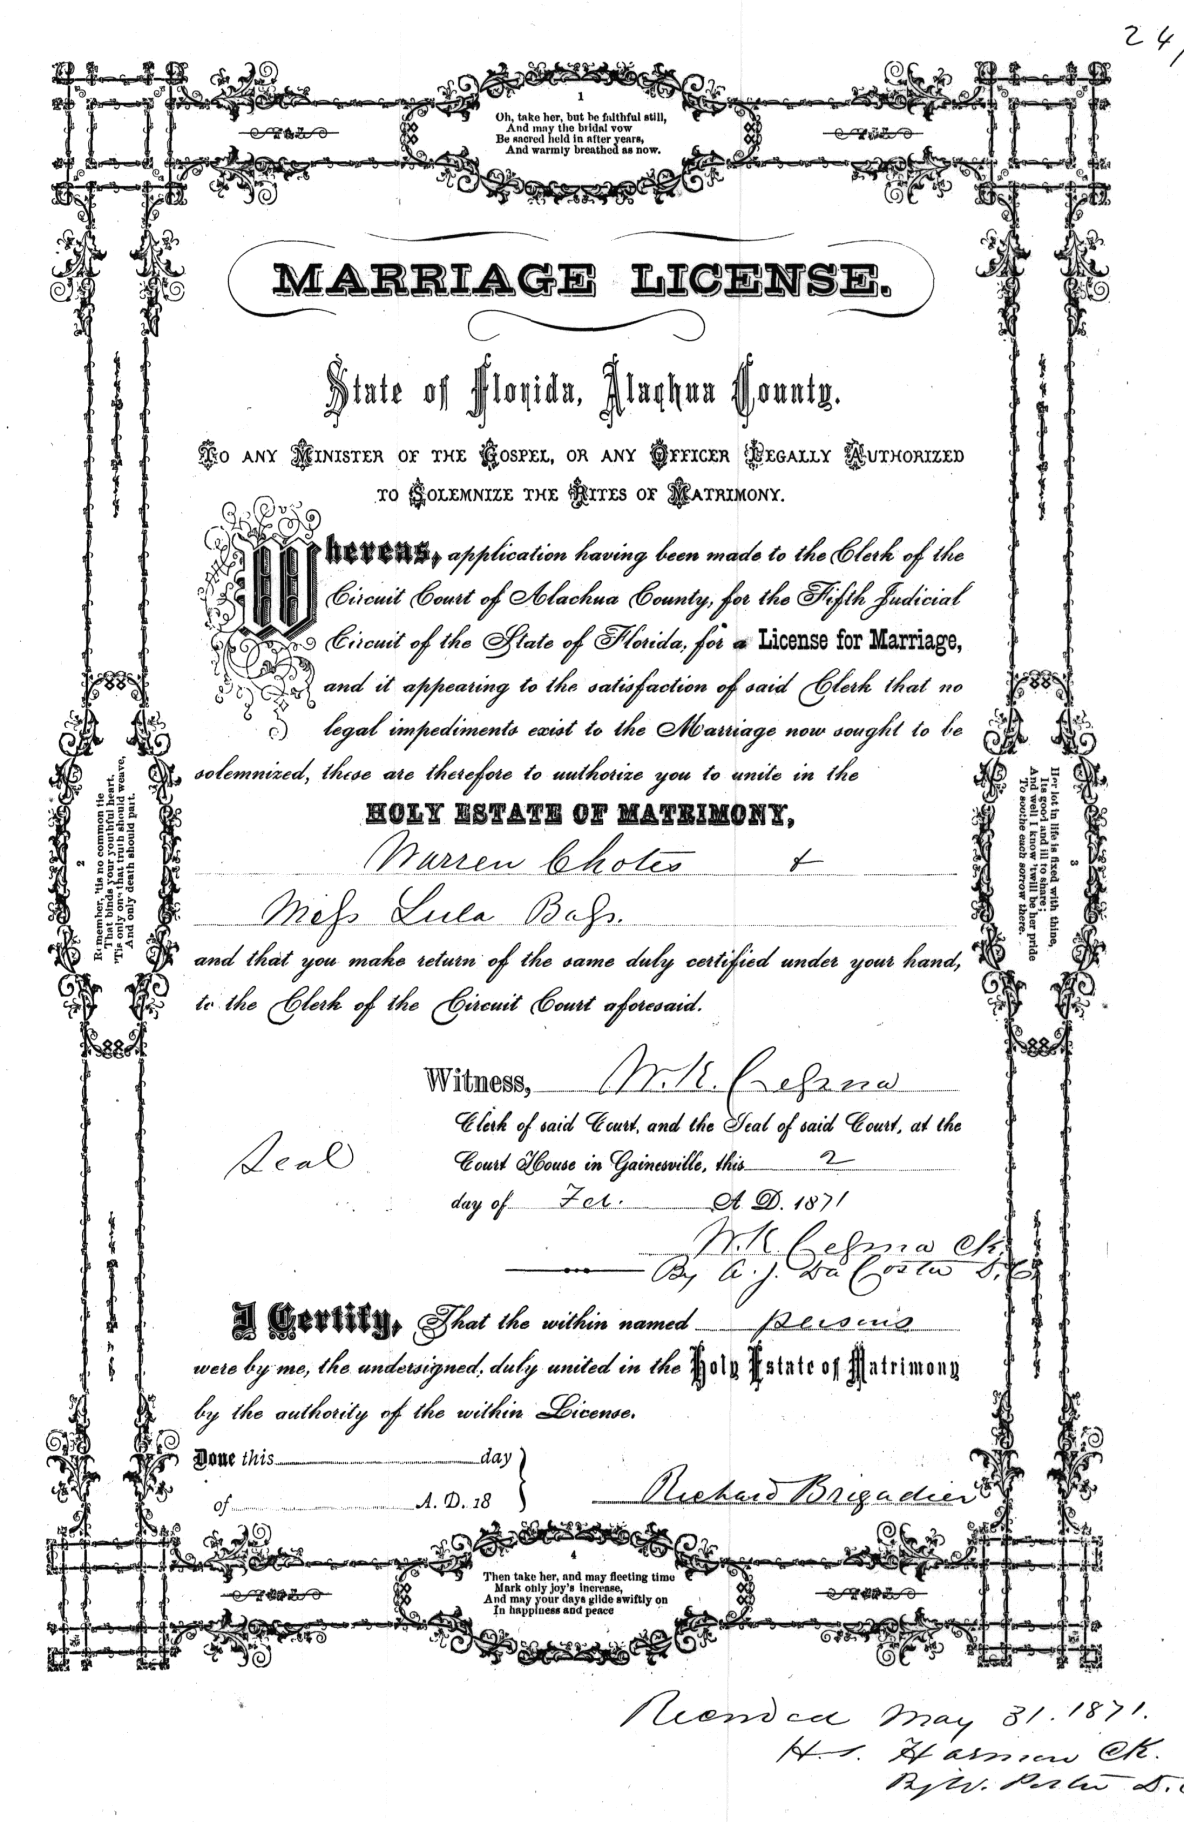 24
1
Oh, take her, but be faithful still,
And may the bridal vow
Be sacred held in after years,
And warmly breathed as now.
MARRIAGE LICENSE.
State of Florida, Alachua County.
TO ANY MINISTER OF THE GOSPEL, OR ANY OFFICER LEGALLY AUTHORIZED
TO SOLEMNIZE THE RITES OF MATRIMONY.
Whereas, application having been made to the Clerk of the
Circuit Court of Alachua County, for the Fifth Judicial
Circuit of the State of Florida, for a License for Marriage,
and it appearing to the satisfaction of said Clerk that no
legal impediments exist to the Marriage now sought to be
solemnized, these are therefore to authorize you to unite in the
HOLY ESTATE OF MATRIMONY,
Warren Chotes +
Miss Lula Bass.
and that you make return of the same duly certified under your hand,
to the Clerk of the Circuit Court aforesaid.
2
Remember, 'tis no common tie
That binds your youthful heart,
'Tis only one that truth should weave,
And only death should part.
3
Her lot in life is fixed with thine,
Its good and ill to share;
And well I know 'twill be her pride
To soothe each sorrow there.
Witness, W. K. Cessna
Clerk of said Court, and the Seal of said Court, at the
Seal Court House in Gainesville, this 2
day of Feb. A. D. 1871
W. K. Cessna Ck.
By A. J. Da Costa D. C.
I Certify, That the within named persons
were by me, the undersigned, duly united in the Holy Estate of Matrimony
by the authority of the within License.
Done this day
of A. D. 18
Richard Brigadier
4
Then take her, and may fleeting time
Mark only joy's increase,
And may your days glide swiftly on
In happiness and peace
Recorded May 31. 1871.
H. S. Harmon Ck.
By W. Porter D. C